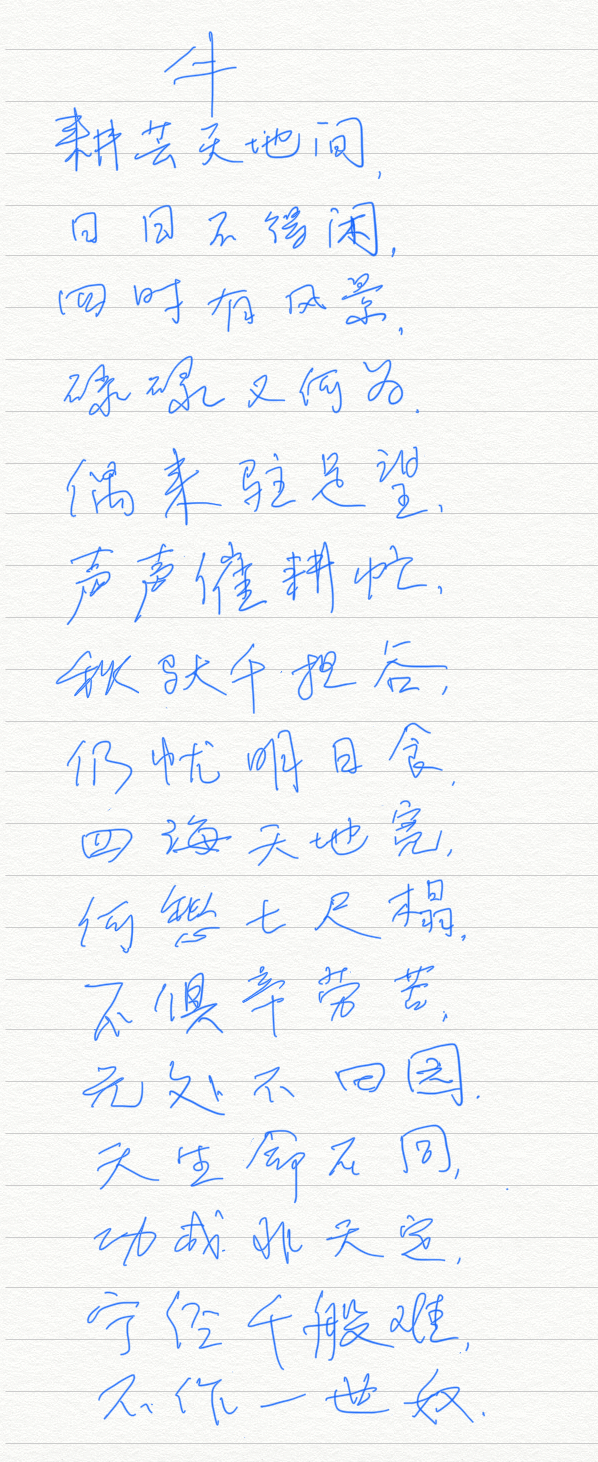 牛
耕芸天地间,
日日不得闲,
四时有风景,
碌碌又何为.
偶来驻足望,
声声催耕忙,
秋驮千担谷,
仍忧明日食.
四海天地宽,
何愁七尺榻,
不惧辛劳苦,
无处不田园.
天生命不同,
功成非天定,
宁经千般难,
不作一世奴.